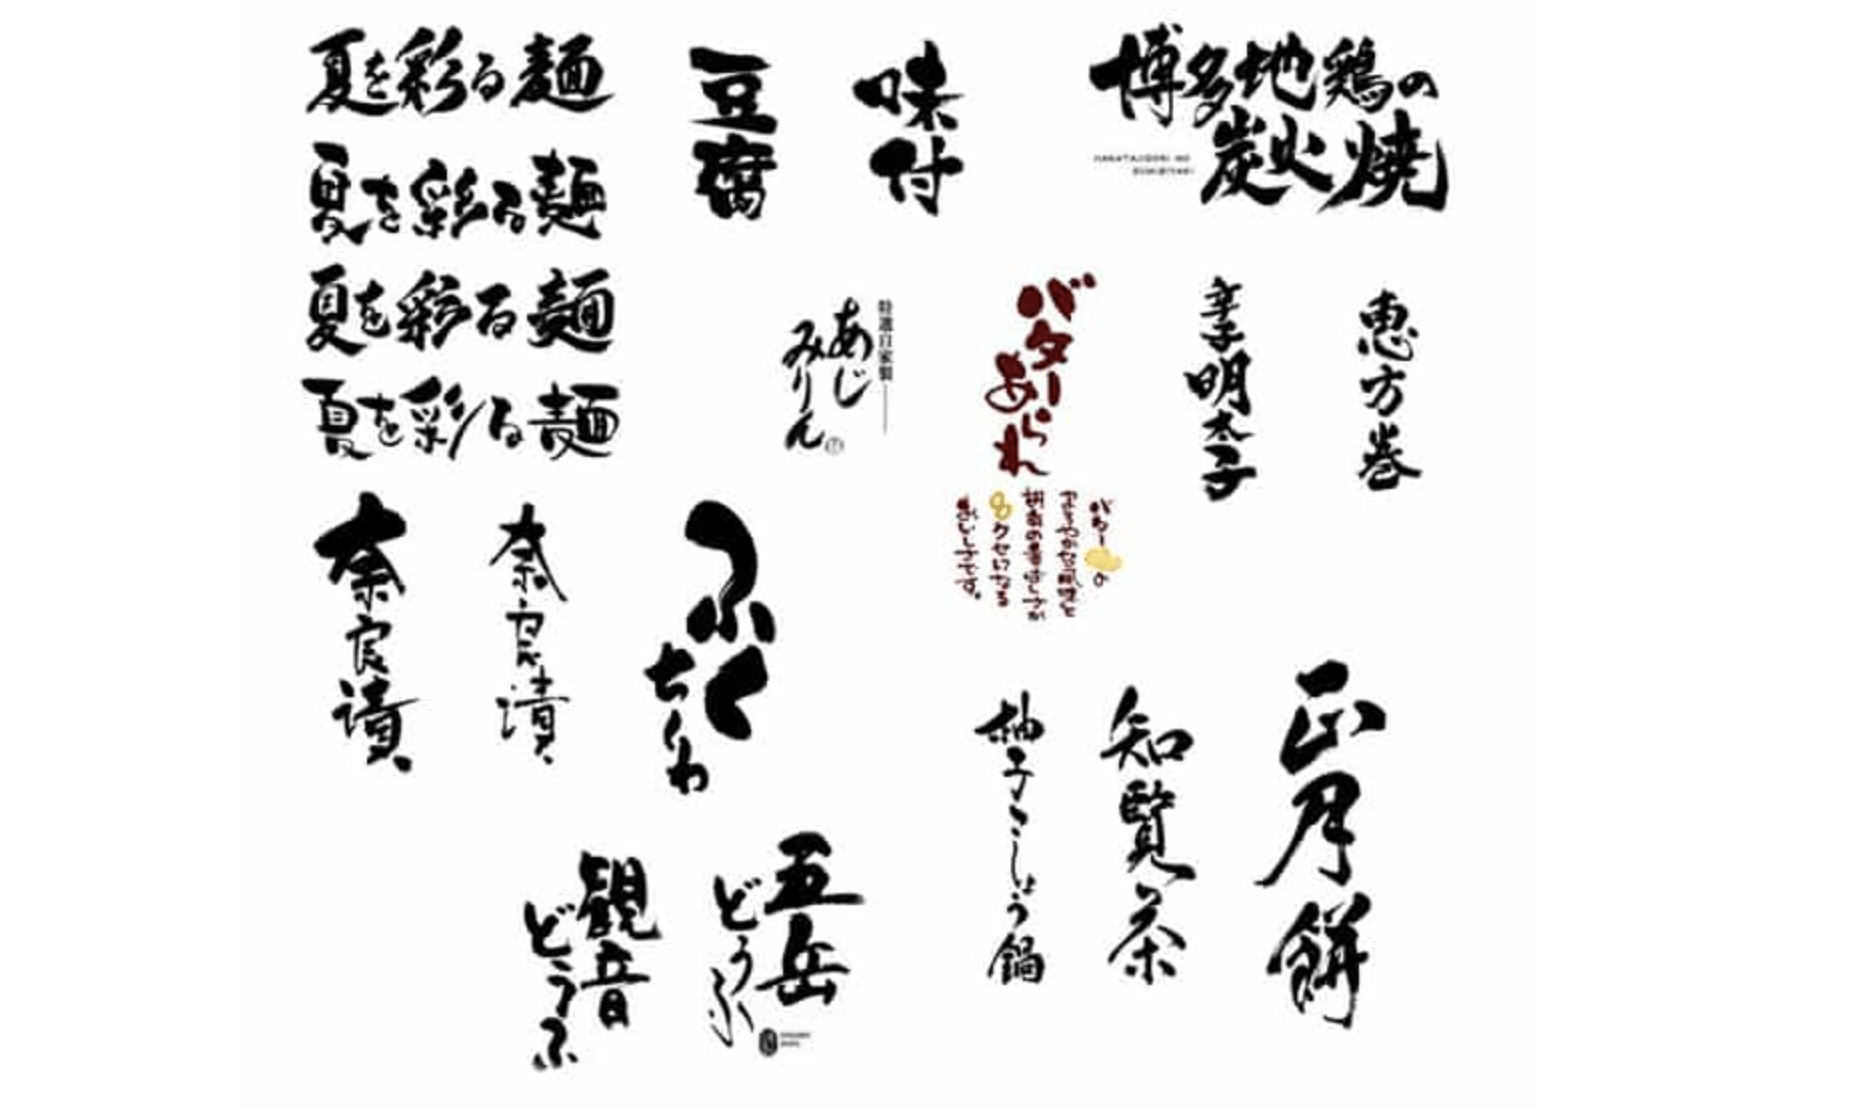 夏を彩る麺
夏を彩る麺
夏を彩る麺
夏を彩る麺
豆腐
味付
博多地鶏の
炭火焼
HAKATAJIDORI NO
SUMIBIYAKI
特選自家製
あじ
みりん
バター
あられ
バターの
まろやかな風味と
胡麻の香ばしさが
クセになる
美味しさです。
辛子明太子
恵方巻
奈良漬
奈良漬
ふく
ちくわ
柚子こしょう鍋
知覧茶
正月餅
観音
どうふ
五岳
どうふ